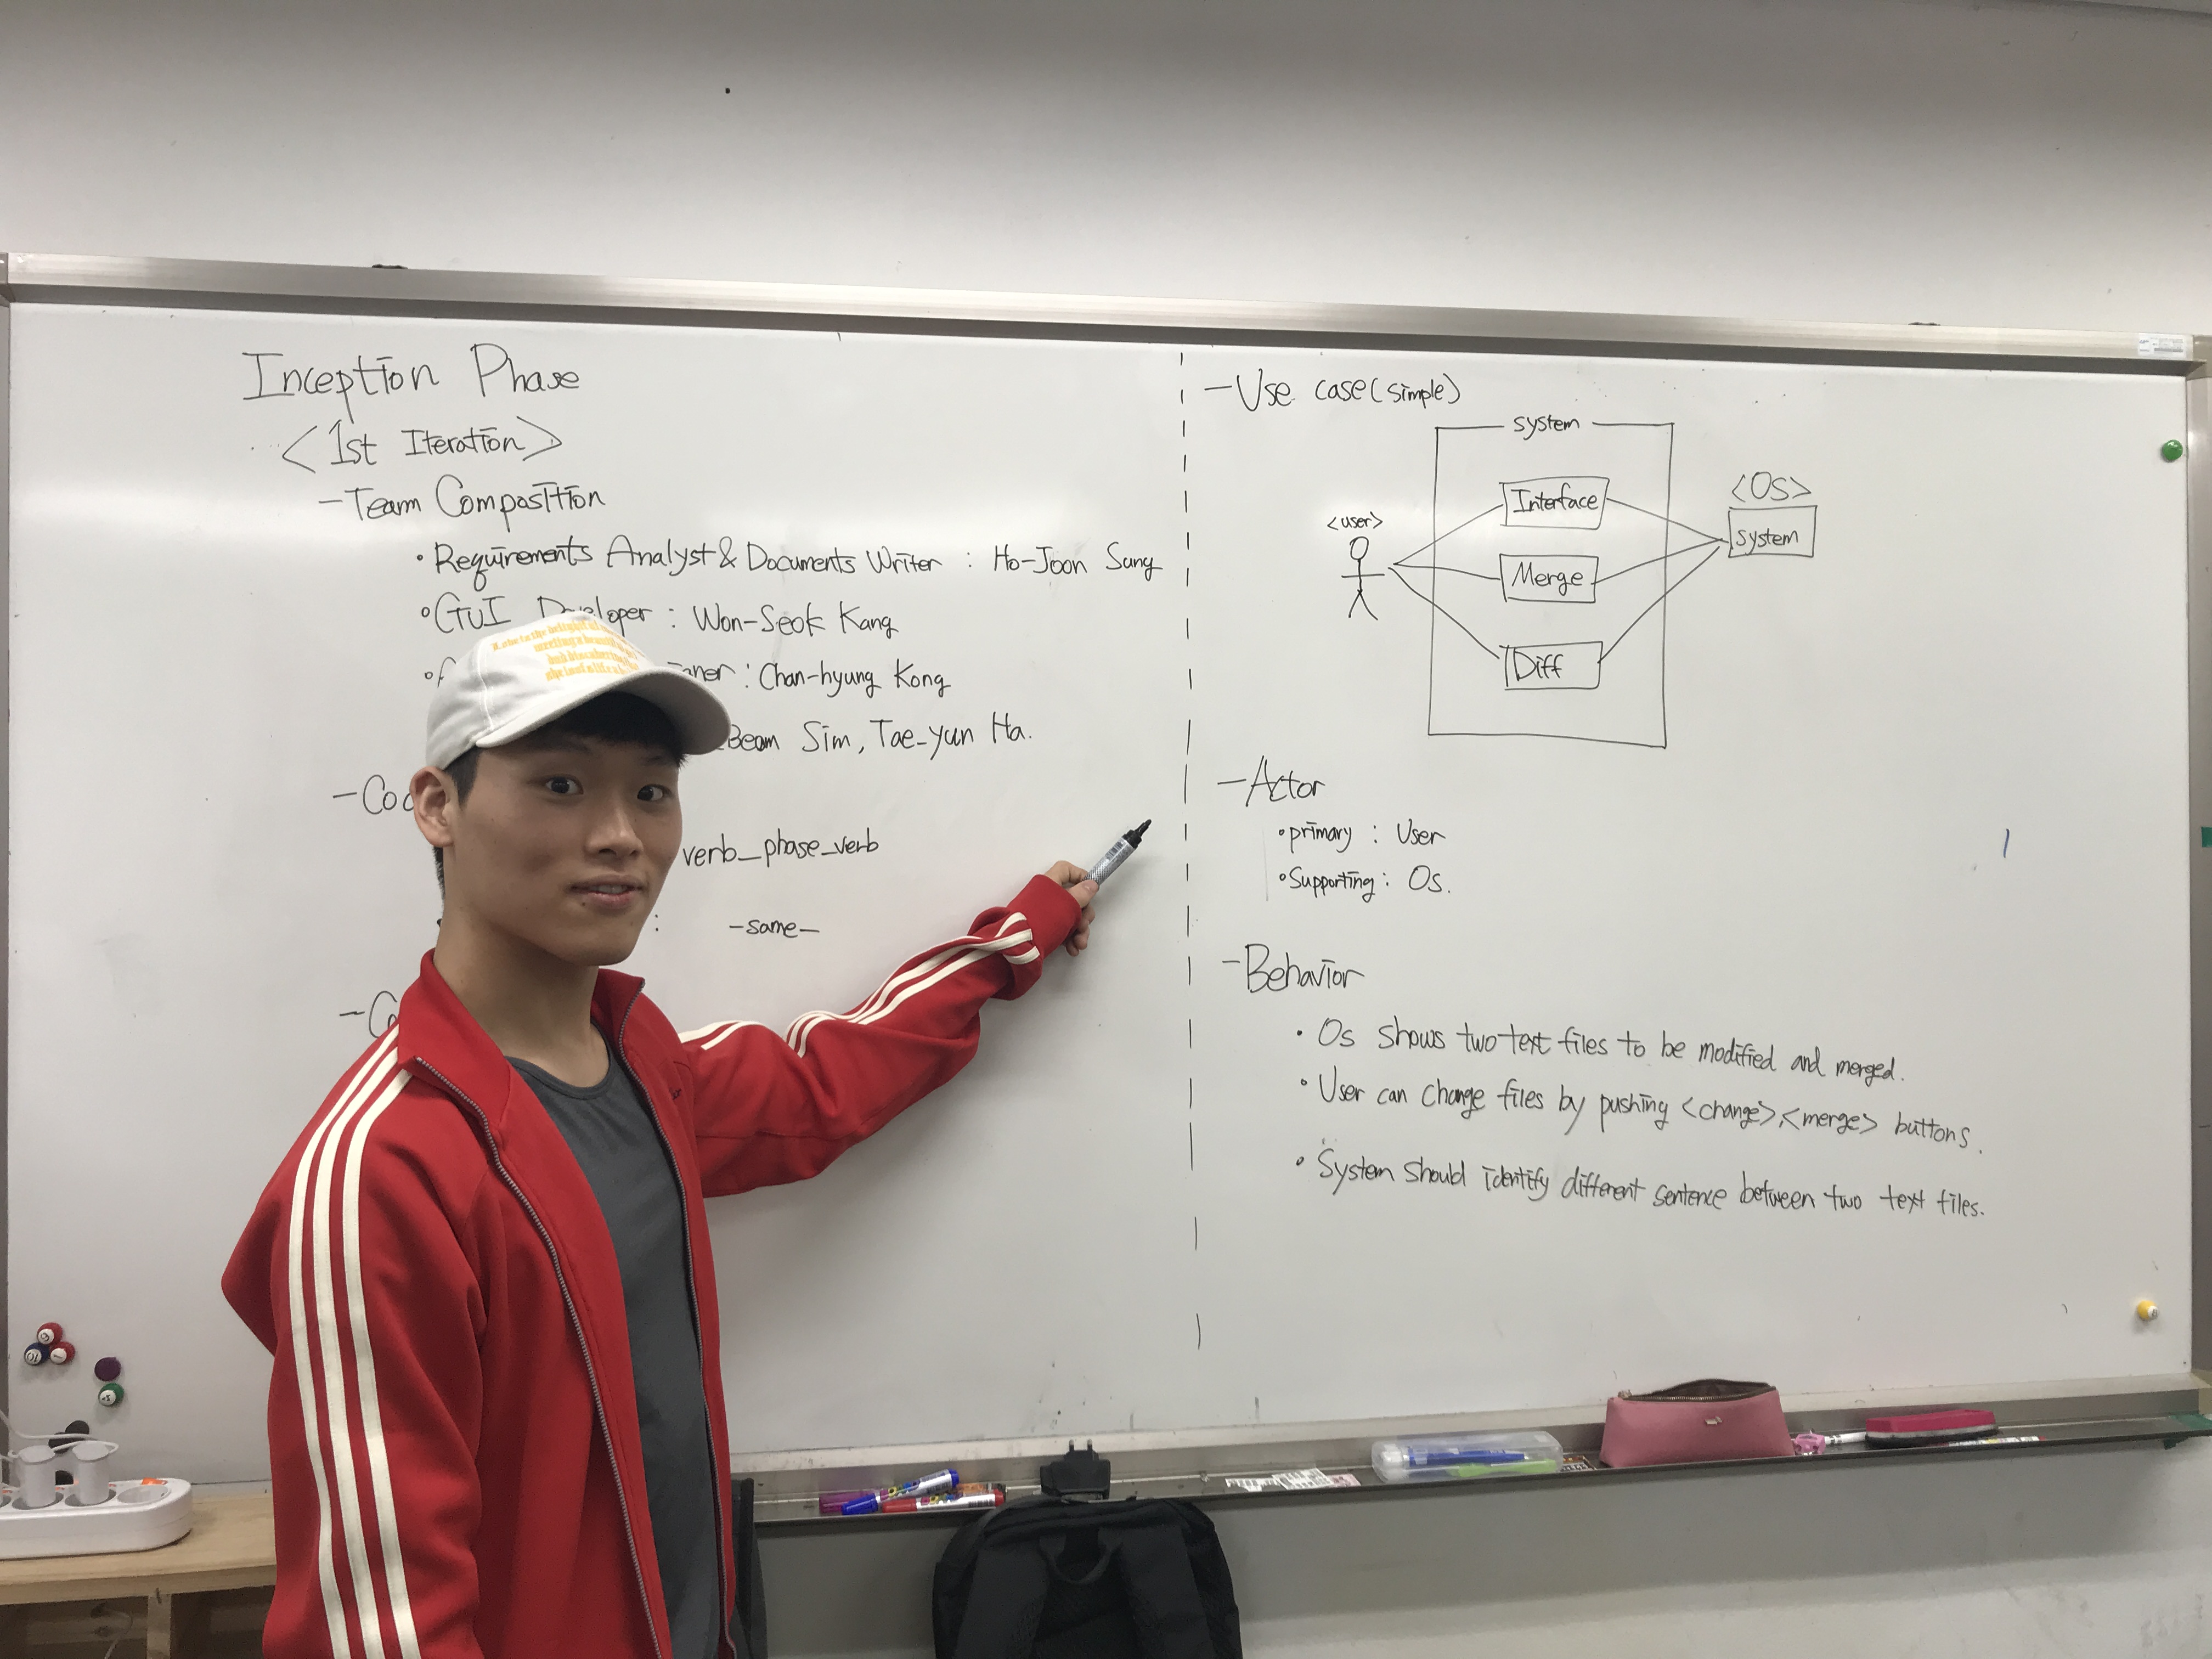 Inception Phase
<1st Iteration>
-Team Composition
• Requirements Analyst & Documents Writer : Ho-Joon Sung
• GUI Developer : Won-Seok Kang
: Chan-hyung Kong
Beom Sim, Tae-yun Ha.
verb_phase_verb
: -same-
-Use case(simple)
system
<user>
Interface
Merge
Diff
<OS>
system
-Actor
• primary : User
• Supporting : Os.
-Behavior
• Os shows two text files to be modified and merged.
• User can change files by pushing <change>,<merge> buttons.
• System should identify different sentence between two text files.